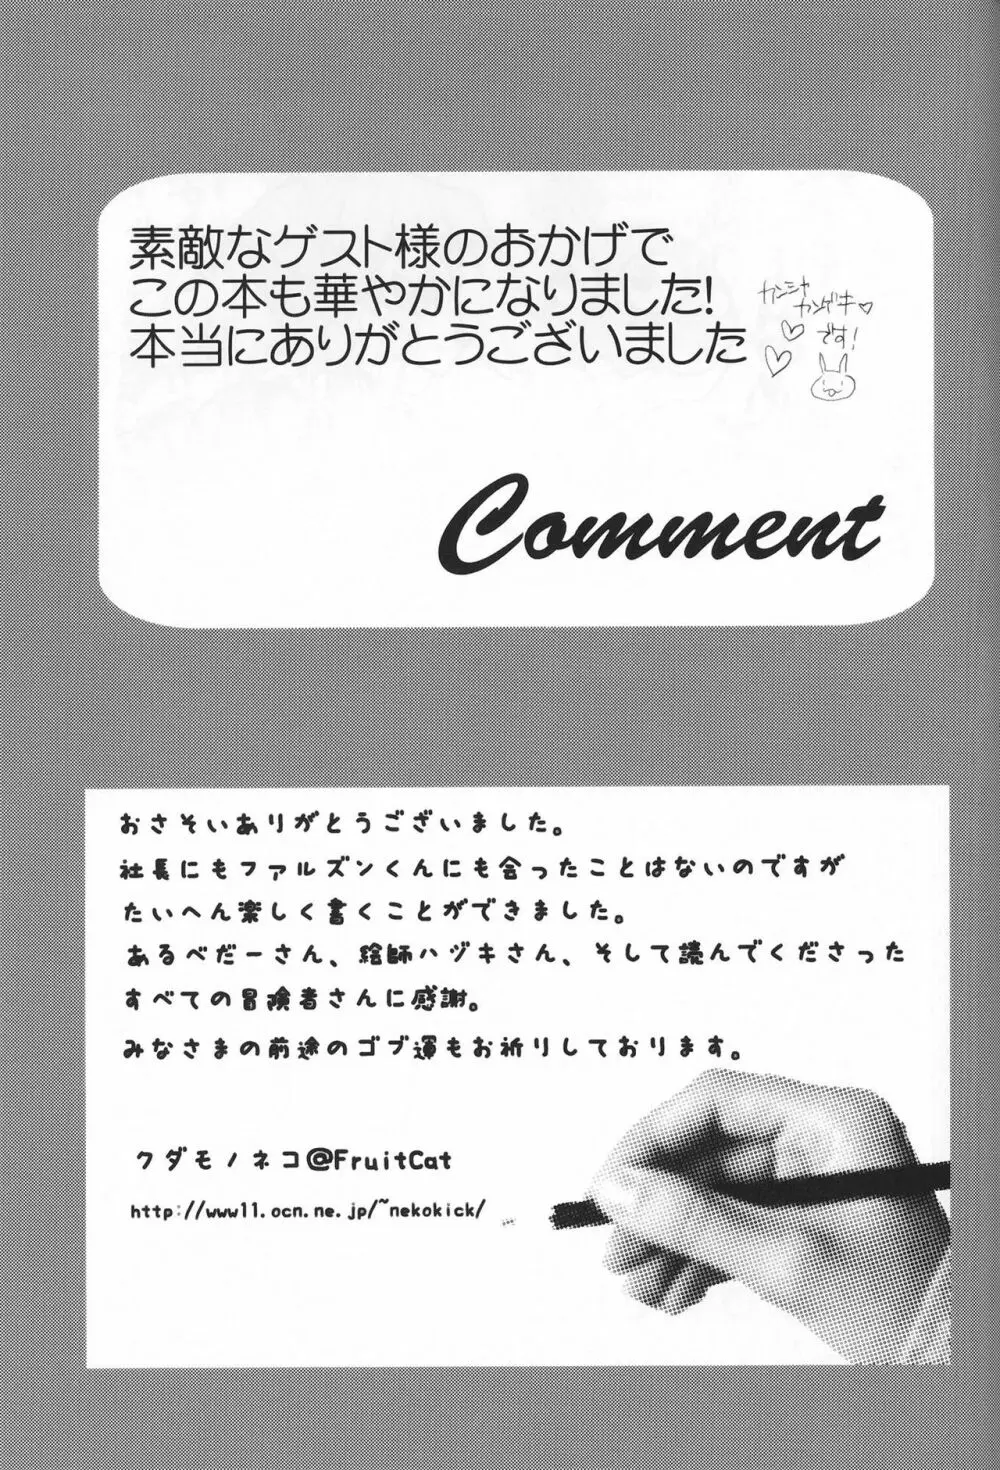 素敵なゲスト様のおかげで
この本も華やかになりました!
本当にありがとうございました
カンシャ
カンゲキ♡
です!
Comment
おさそいありがとうございました。
社長にもファルズンくんにも会ったことはないのですが
たいへん楽しく書くことができました。
あるべだーさん、絵師ハヅキさん、そして読んでくださった
すべての冒険者さんに感謝。
みなさまの前途のゴブ運もお祈りしております。
クダモノネコ@FruitCat
http://www11.ocn.ne.jp/~nekokick/